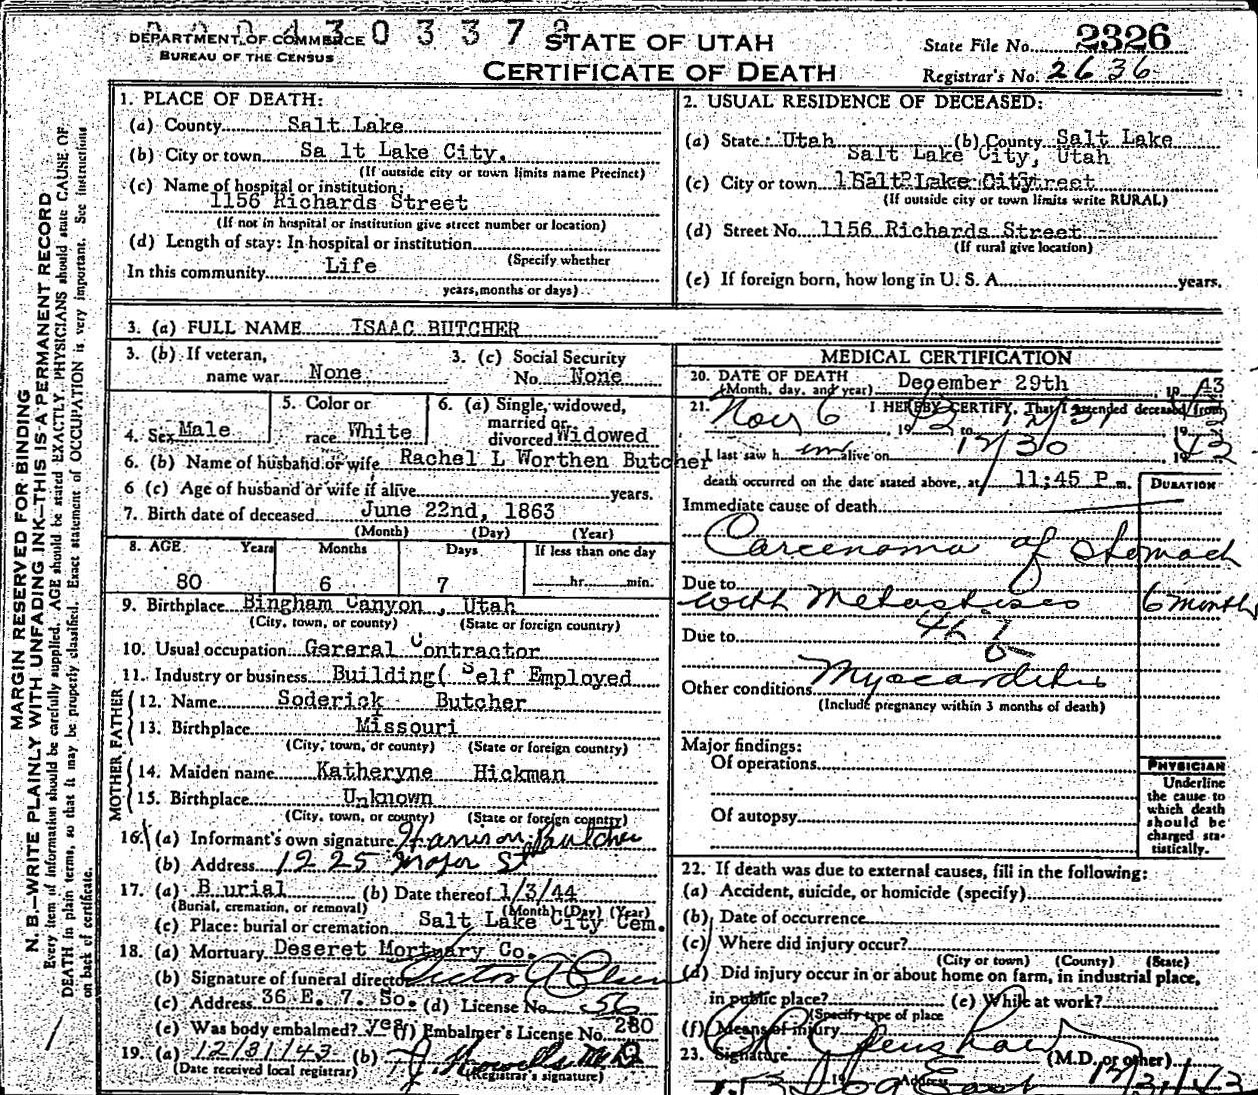 DEPARTMENT OF COMMERCE
BUREAU OF THE CENSUS
STATE OF UTAH
CERTIFICATE OF DEATH
State File No. 2326
Registrar's No. 2636
MARGIN RESERVED FOR BINDING
N. B.—WRITE PLAINLY WITH UNFADING INK—THIS IS A PERMANENT RECORD
Every item of information should be carefully supplied. AGE should be stated EXACTLY. PHYSICIANS should state CAUSE OF
DEATH in plain terms, so that it may be properly classified. Exact statement of OCCUPATION is very important. See instructions
on back of certificate.
1. PLACE OF DEATH:
(a) County Salt Lake
(b) City or town Sa lt Lake City.
(If outside city or town limits name Precinct)
(c) Name of hospital or institution:
1156 Richards Street
(If not in hospital or institution give street number or location)
(d) Length of stay: In hospital or institution
(Specify whether
In this community Life
years, months or days)
2. USUAL RESIDENCE OF DECEASED:
(a) State Utah (b) County Salt Lake
Salt Lake City, Utah
(c) City or town Salt Lake City
(If outside city or town limits write RURAL)
(d) Street No. 1156 Richards Street
(If rural give location)
(e) If foreign born, how long in U. S. A. years.
3. (a) FULL NAME ISAAC BUTCHER
3. (b) If veteran,
name war None
3. (c) Social Security
No. None
4. Sex Male
5. Color or
race White
6. (a) Single, widowed,
married or
divorced Widowed
6. (b) Name of husband or wife Rachel L Worthen Butcher
6 (c) Age of husband or wife if alive years.
7. Birth date of deceased June 22nd, 1863
(Month) (Day) (Year)
8. AGE Years Months Days If less than one day
80 6 7 hr. min.
9. Birthplace Bingham Canyon, Utah
(City, town, or county) (State or foreign country)
10. Usual occupation General Contractor
11. Industry or business Building( Self Employed
FATHER
12. Name Soderick Butcher
13. Birthplace Missouri
(City, town, or county) (State or foreign country)
MOTHER
14. Maiden name Katheryne Hickman
15. Birthplace Unknown
(City, town, or county) (State or foreign country)
16. (a) Informant's own signature Harrison Butcher
(b) Address 1225 Major St
17. (a) Burial (b) Date thereof 1/3/44
(Burial, cremation, or removal) (Month) (Day) (Year)
(c) Place: burial or cremation Salt Lake City Cem.
18. (a) Mortuary Deseret Mortuary Co.
(b) Signature of funeral director Victor
(c) Address 36 E. 7. So. (d) License No. 56
(e) Was body embalmed? yes (f) Embalmer's License No. 280
19. (a) 12/31/43 (b)
(Date received local registrar) (Registrar's signature)
MEDICAL CERTIFICATION
20. DATE OF DEATH
(Month, day, and year) December 29th 1943
21. I HEREBY CERTIFY, That I attended deceased from
Nov 6 1943 to 12/31 19
I last saw h im alive on 12/30 1943
death occurred on the date stated above, at 11:45 P m.
DURATION
Immediate cause of death
Carcenoma of stomach
Due to
with Metastases 6 months
Due to
Other conditions Myocarditis
(Include pregnancy within 3 months of death)
Major findings:
Of operations
Of autopsy
PHYSICIAN
Underline
the cause to
which death
should be
charged sta-
tistically.
22. If death was due to external causes, fill in the following:
(a) Accident, suicide, or homicide (specify)
(b) Date of occurrence
(c) Where did injury occur?
(City or town) (County) (State)
(d) Did injury occur in or about home on farm, in industrial place,
in public place? (e) While at work?
(Specify type of place
(f) Means of injury
23. Signature (M.D. or other)
Address East 12/31/43